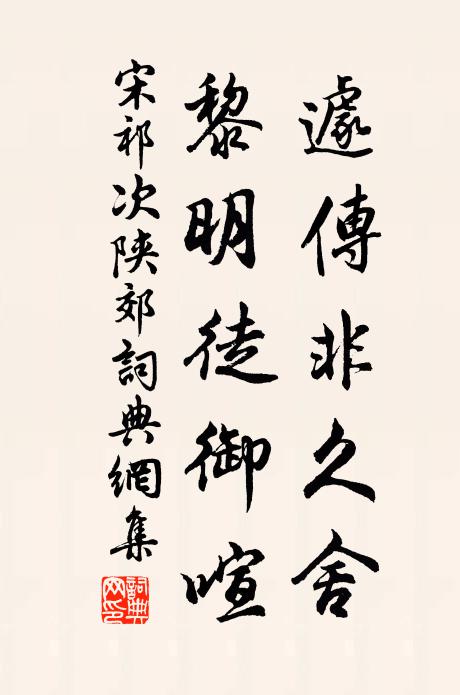 遽傳非久舍
黎明徒御喧
宋祁次陝郊詞典網集
詞典网印